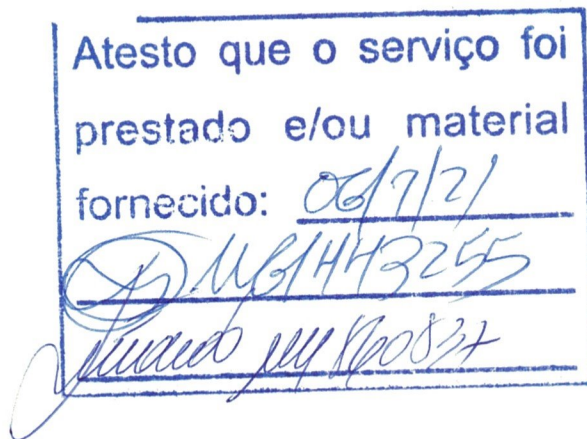 Atesto que o serviço foi
prestado e/ou material
fornecido: 06/7/21
1443255
860837